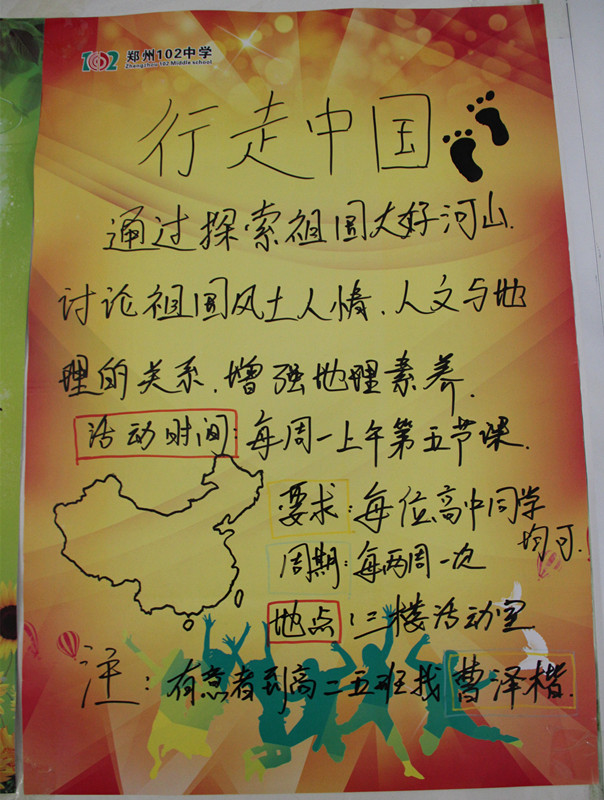 102 郑州102中学
Zhengzhou 102 Middle school
行走中国
通过探索祖国大好河山.
讨论祖国风土人情.人文与地
理的关系.增强地理素养.
活动时间:每周一上午第五节课.
要求:每位高中同学
均可.
周期:每两周一次
地点:三楼活动室
注:有意者到高二五班找曹泽楷.